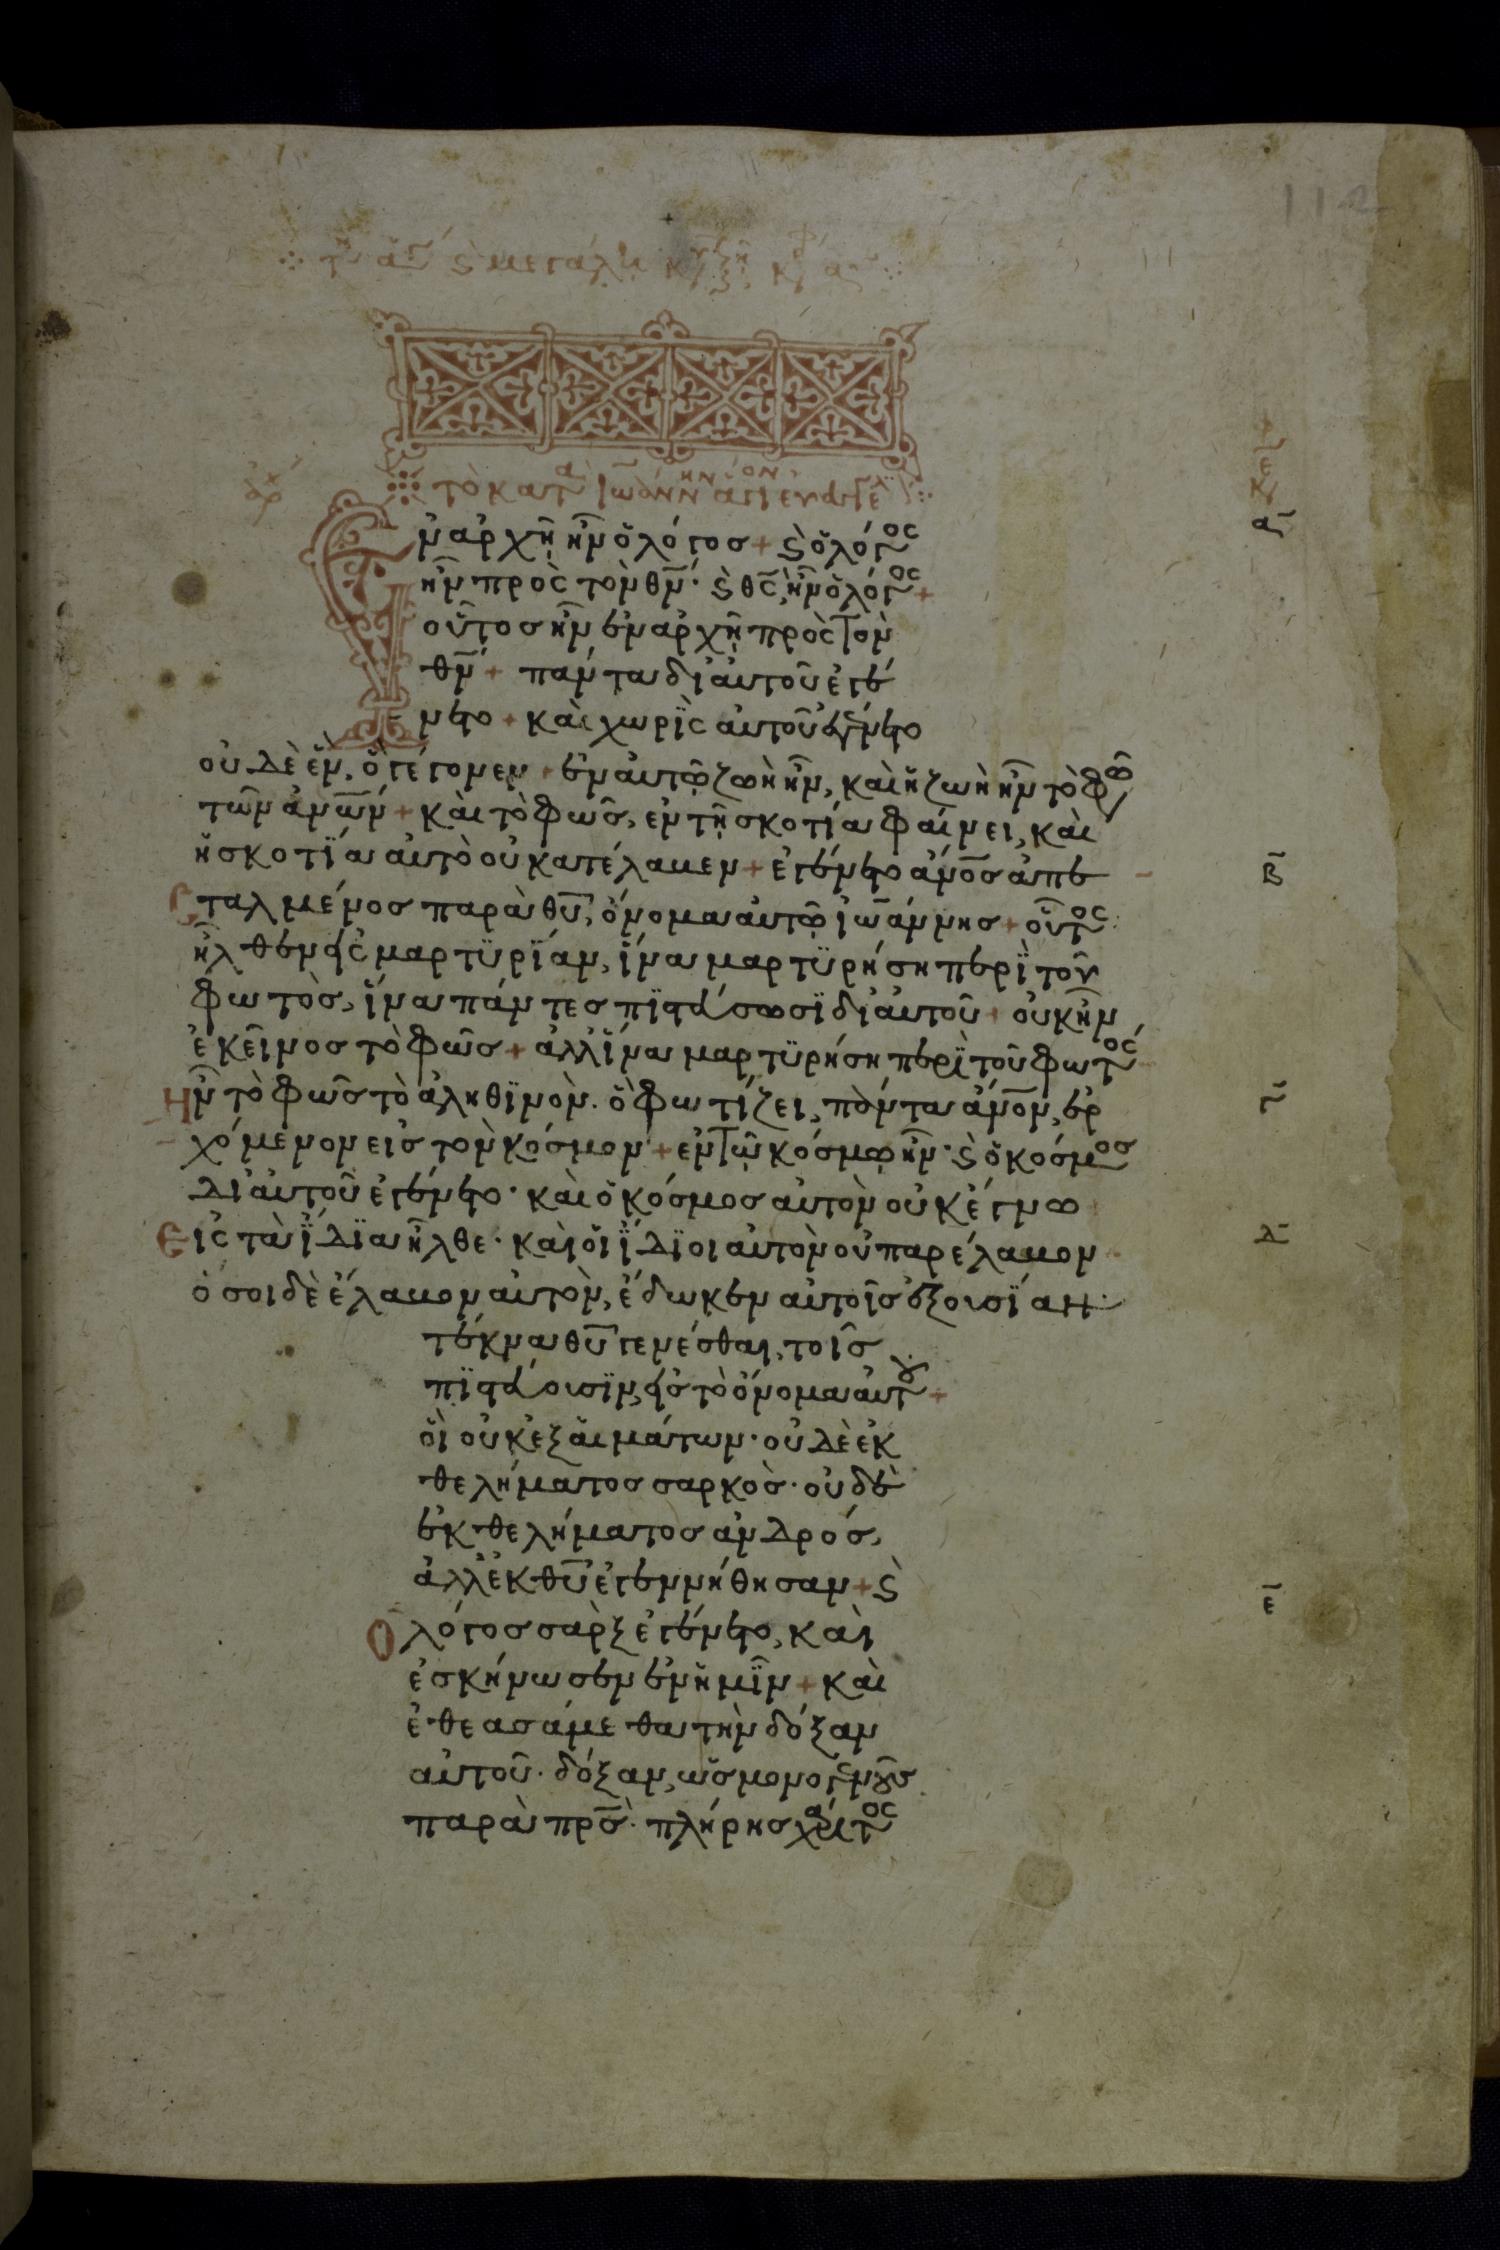 112
τῇ ἁγ ϛ μεγάλη κυ
τὸ κατὰ ἰωάννην ἅγιον εὐαγγέλ
ἀρχ
κεφ
Ἐν ἀρχῆ ἦν ὁ λόγοσ + ϛ ὁ λόγος
ἦν πρὸς τὸν θν̅· ϛ θς̅, ἦν ὁ λόγος +
οὗτοσ ἦν ἐν ἀρχῆ πρὸς τὸν
θν̅ + πάντα δι αὐτοῦ ἐγέ
νετο + καὶ χωρὶς αὐτοῦ ἐγένετο
οὐδὲ ἕν, ὃ γέγονεν + ἐν αὐτῶ ζωὴ ἦν, καὶ ἡ ζωὴ ἦν τὸ φῶ
τῶν ἀνων̅ + καὶ τὸ φῶσ, ἐν τῆ σκοτία φαίνει, καὶ
ἡ σκοτΐα αὐτὸ οὐ κατέλαβεν + ἐγένετο ἀνοσ̅ ἀπε
σταλμένοσ παρὰ θυ̅, ὄνομα αὐτῶ ἰω̅άννησ + οὗτος
ἦλθεν εἰς μαρτϋρΐαν, ἵνα μαρτϋρήση περῒ τοῦ
φωτὸσ, ἵνα πάντεσ πϊστεύσωσϊ δι αὐτοῦ + οὐκ ἦν
ἐκεῖνοσ τὸ φῶσ + ἀλλ ἵνα μαρτϋρήση περῒ τοῦ φωτός
Ἦν τὸ φῶσ τὸ ἀληθϊνὸν. ὃ φωτίζει, πάντα ἀνον̅, ἐρ
χόμενον εἰσ τὸν κόσμον + ἐν τῶ κόσμω ἦν· ϛ ὁ κόσμοσ
δι αὐτοῦ ἐγένετο· καὶ ὁ κόσμοσ αὐτὸν οὐκ ἔγνω
Εἰς τὰ ἴδϊα ἦλθε· καὶ οἱ ἴδϊοι αὐτὸν οὐ παρέλαβον
ὅσοι δὲ ἔλαβον αὐτὸν, ἔδωκεν αὐτοῖσ ἐξουσΐαν
τέκνα θυ̅ γενέσθαι, τοῖσ
πϊστεύουσϊν, εἰσ τὸ ὄνομα αὐτου +
οἳ οὐκ ἐξ αἱμάτων· οὐδὲ ἐκ
θελήματοσ σαρκὸσ· οὐδὲ
ἐκ θελήματοσ ἀνδρόσ,
ἀλλ ἐκ θυ̅ ἐγεννήθησαν + ϛ
Ὁ λόγοσ σὰρξ ἐγένετο, καὶ
ἐσκήνωσεν ἐν ἡμῖν + καὶ
ἐθεασάμεθα τὴν δόξαν
αὐτοῦ· δόξαν, ὡσ μονογενοῦσ
παρὰ πρσ̅· πλήρησ χάριτος
α̅
β̅
γ̅
δ̅
ε̅